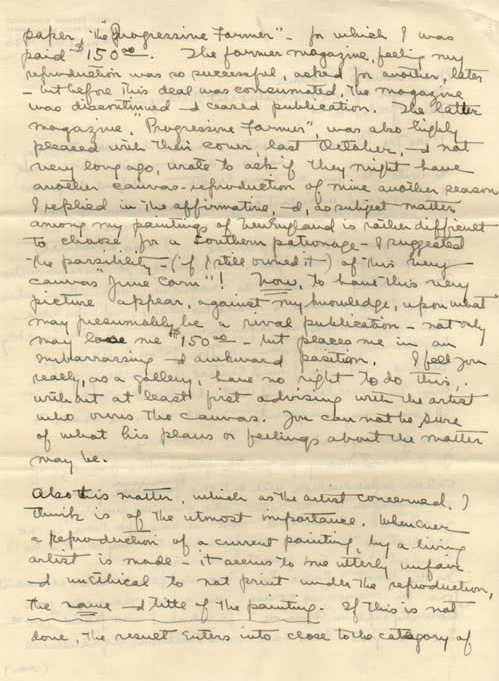 paper, "the Progressive Farmer" - for which I was
paid $150.00. The former magazine, feeling my
reproduction was so successful, asked for another, later
- but before this deal was consumated, the magazine
was discontinued & ceased publication. The latter
magazine, "Progressive Farmer", was also highly
pleased with their cover, last October, & not
very long ago, wrote to ask if they might have
another canvas-reproduction of mine another season
I replied in the affirmative, &, as subject matter
among my paintings of New England is rather difficult
to choose for a Southern patronage - I suggested
the possibility - (if I still owned it) of this very
canvas "June Corn"! Now, to have this very
picture appear, against my knowledge, upon what
may presumably be a rival publication - not only
may lose me $150.00 - but places me in an
embarrassing & awkward position. I feel you
really, as a gallery, have no right to do this,
without at least first advising with the artist
who owns the canvas. You can not be sure
of what his plans or feelings about the matter
may be.
Also this matter, which as the artist concerned, I
think is of the utmost importance. Whenever
a reproduction of a current painting, by a living
artist is made - it seems to me utterly unfair
& unethical to not print under the reproduction,
the name & title of the painting. If this is not
done, the result enters into close to the category of